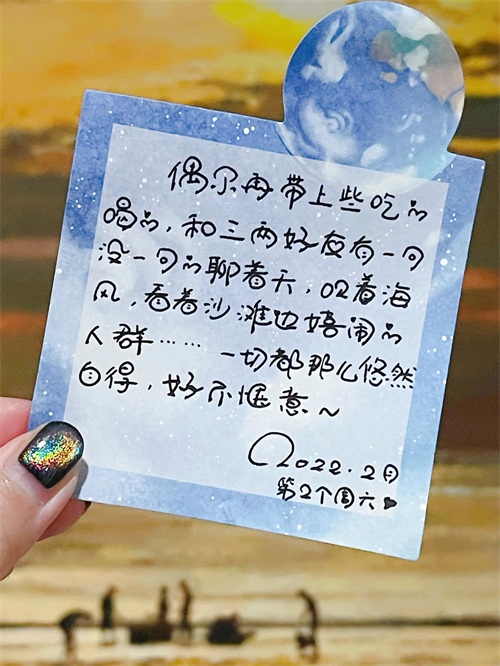 偶尔再带上些吃的
喝的，和三两好友有一句
没一句的聊着天，吹着海
风，看着沙滩边嬉闹的
人群……一切都那么悠然
自得，好不惬意～
2022.2月
第2个周六❤